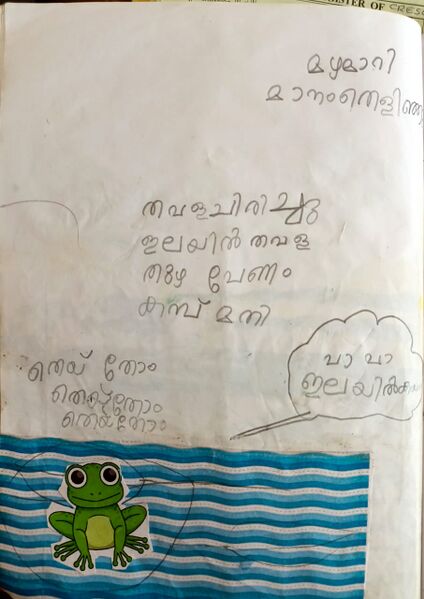 ISTER OF CRESC
മഴമാറി
മാനംതെളിഞ്ഞു
തവളചിരിച്ചു
ഇലയിൽ തവള
തുഴ വേണം
കമ്പ് മതി
തെയ് തോം
തെയ്തോം
തെയ്തോം
വാ വാ
ഇലയിൽ